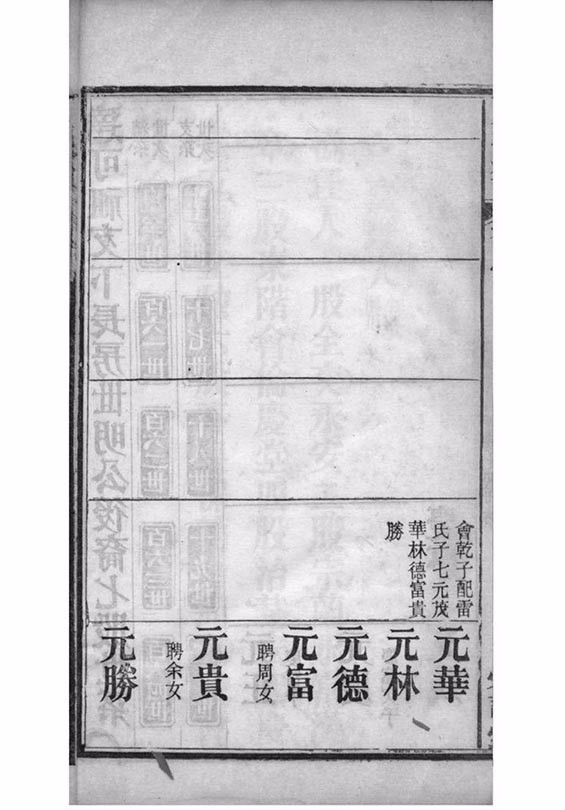 會乾子配雷
氏子七元茂
華林德富貴
勝
元華
元林
元德
元富
聘周女
元貴
聘余女
元勝